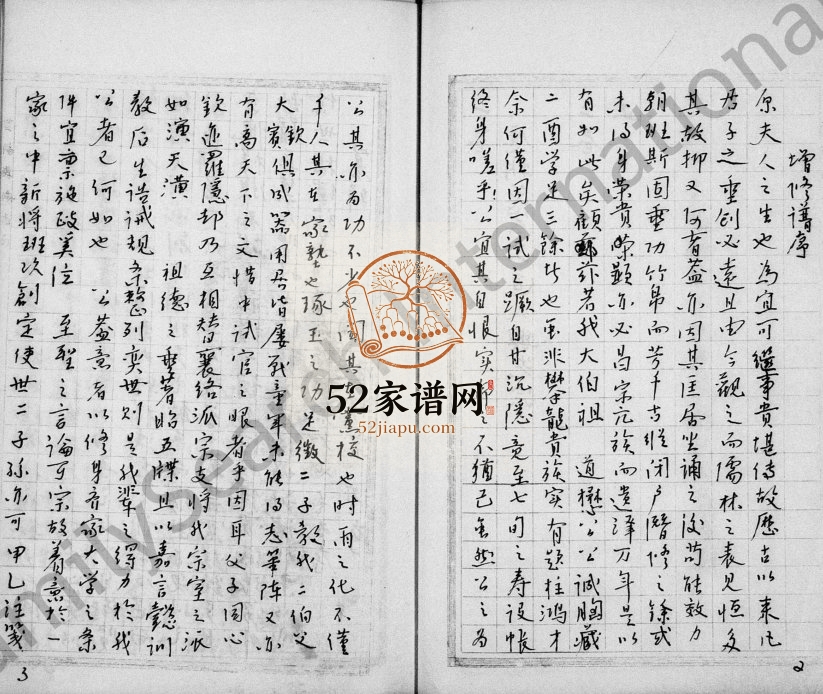 增修譜序
原夫人之生也為宜可繼事貴堪傳故歷古以來凡
君子之垂創必遠且由今觀之而儒林之表見恒多
其故抑又何者蓋亦因其匡居坐誦之後苟能效力
朝班斯固垂功竹帛而芳千古縱閉戶潛修之餘或
未得身榮貴榮顯亦必昌宗亢族而遺澤万年是以
有如此矣顧 若我大伯祖 道懋公公誠胸藏
二酉学足三餘者也雖非攀龍貴族实有题柱鴻才
奈何僅因一試之蹶自甘沉隱竟至七旬之寿設帳
終身嗟乎公宜其自恨实 之不猶已雖然公之為
2
公其亦為功不少也聞其 黨校也时雨之化不僅
千人其在 家塾也琢玉之功足徵二子教我二伯父
大賓欽俱成器用否皆屢戰童軍未能得志筆陣又亦
有高天下之文惜中試官之眼者乎因耳父子同心
欽進羅隱却乃互相替襄络派宗支將我宗室之派
如演天潢 祖德之垂著昭五牒且以嘉言懿訓
教后生诰诫规条整列奕世则是我輩之得力於我
公者已何如也 公蓋意者以修身齐家大学之条
件宜禀施政美位 至聖之言論可宗故着意於一
家之中新將班次創定使世二子孫亦可甲乙註箋
3
52家谱网
52jiapu.com
FamilySearch International